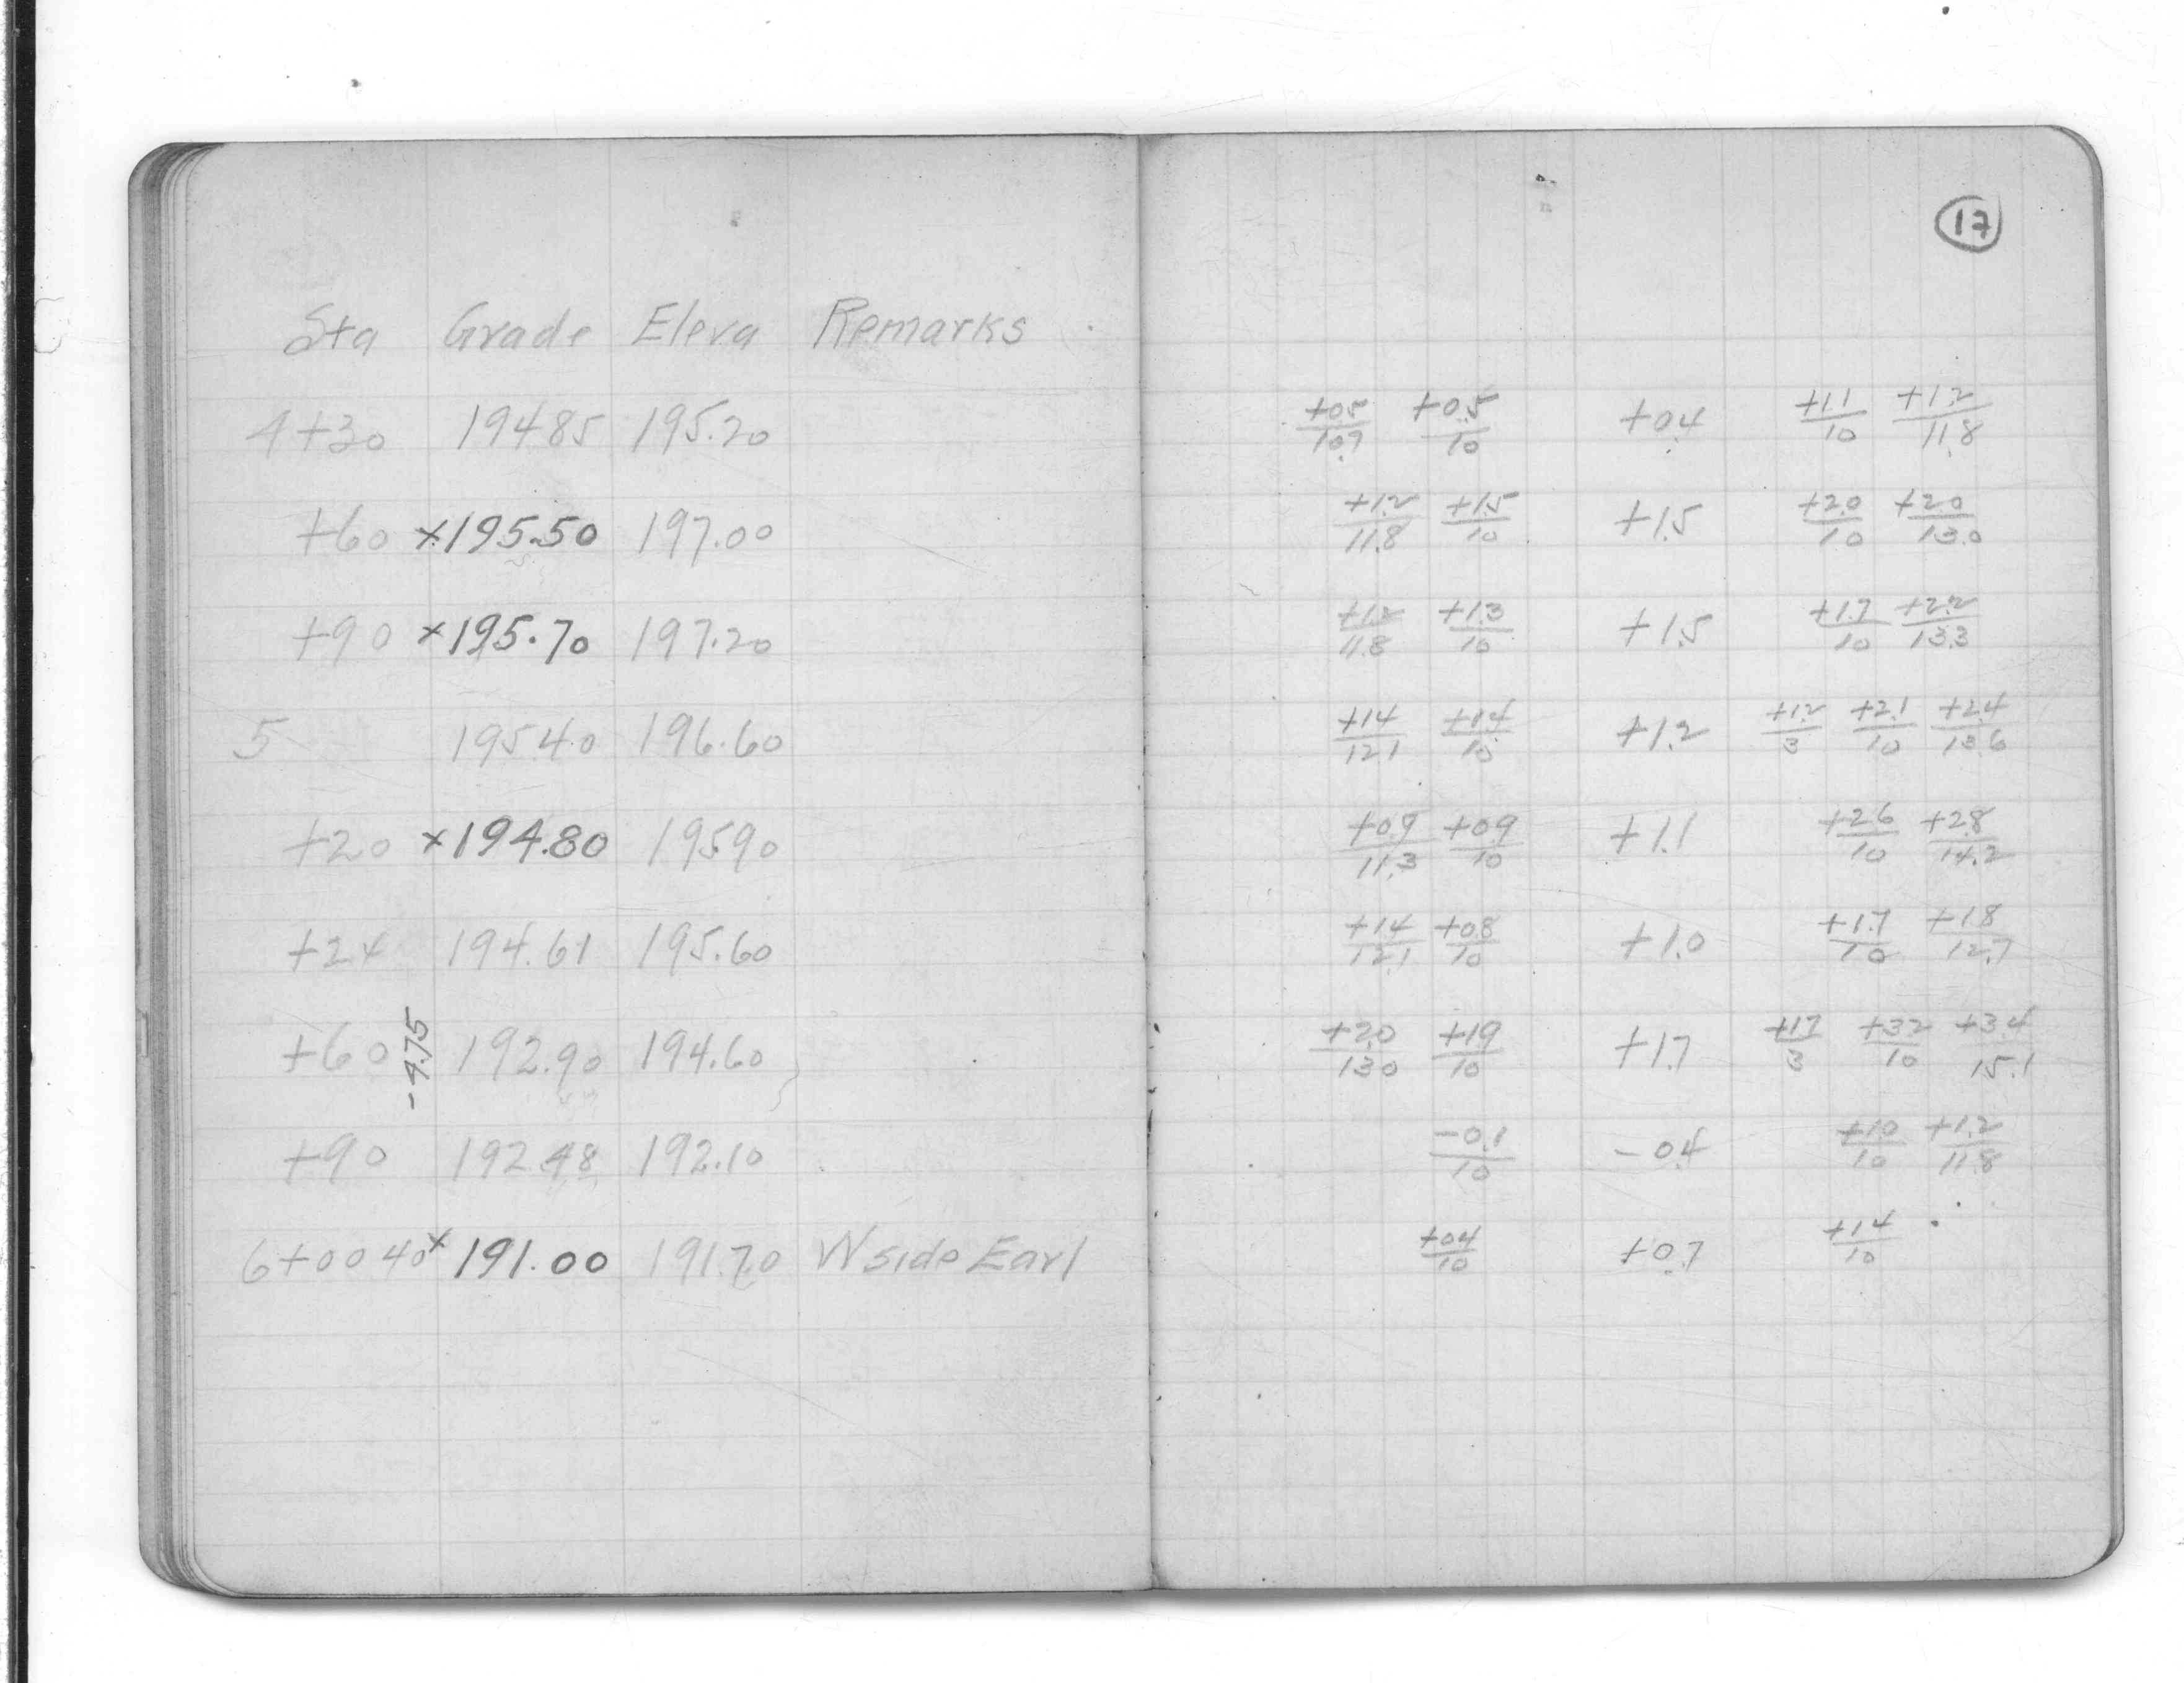 17
Sta Grade Eleva Remarks
4+30 194.85 195.20 +0.5/10.7 +0.5/10 +0.4 +1.1/10 +1.2/11.8
+60 x195.50 197.00 +1.2/11.8 +1.5/10 +1.5 +2.0/10 +2.0/13.0
+90 x195.70 197.20 +1.2/11.8 +1.3/10 +1.5 +1.7/10 +2.2/13.3
5 195.40 196.60 +1.4/12.1 +1.4/10 +1.2 +1.2/3 +2.1/10 +2.4/13.6
+20 x194.80 195.90 +0.9/11.3 +0.9/10 +1.1 +2.6/10 +2.8/14.2
+24 194.61 195.60 +1.4/12.1 +0.8/10 +1.0 +1.7/10 +1.8/12.7
+60 192.90 194.60 +2.0/13.0 +1.9/10 +1.7 +1.7/3 +3.2/10 +3.4/15.1
-4.75
+90 192.48 192.10 -0.1/10 -0.4 +1.0/10 +1.2/11.8
6+00 40 x191.00 191.70 W side Earl +0.4/10 +0.7 +1.4/10